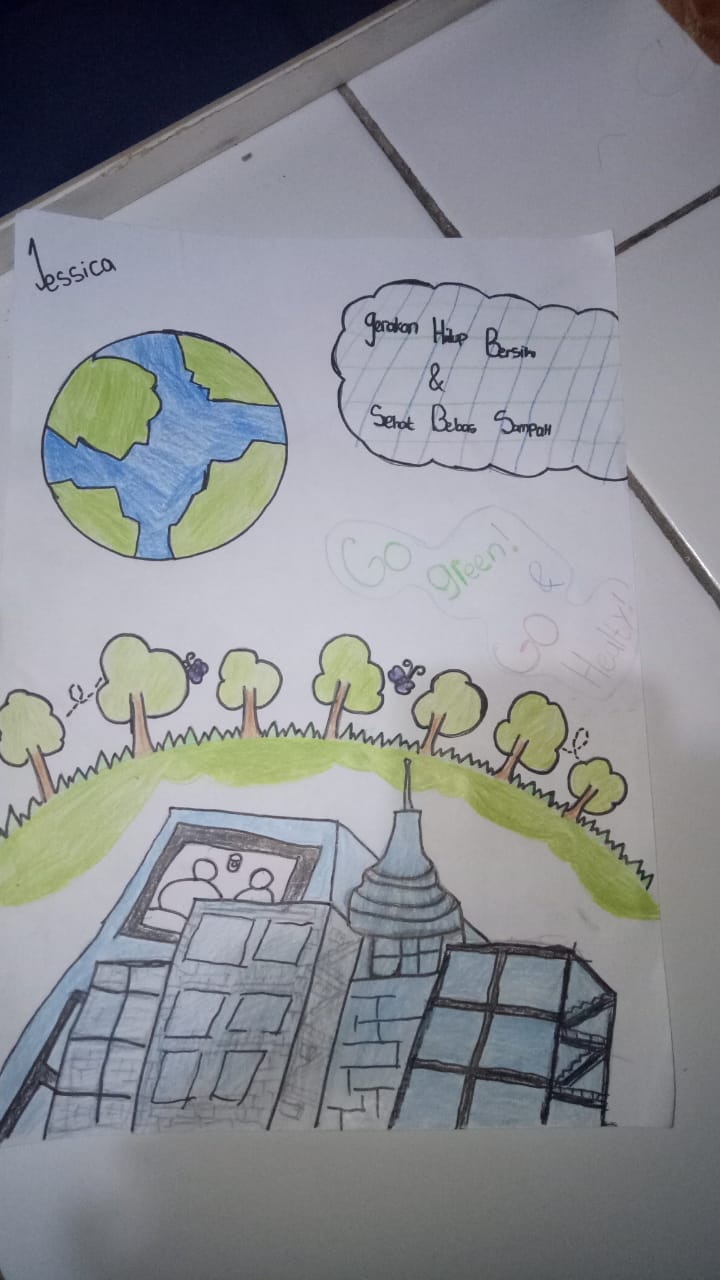 Jessica
gerakan Hidup Bersih
&
Sehat Bebas Sampah
Go
green!
&
Go
Healty!!